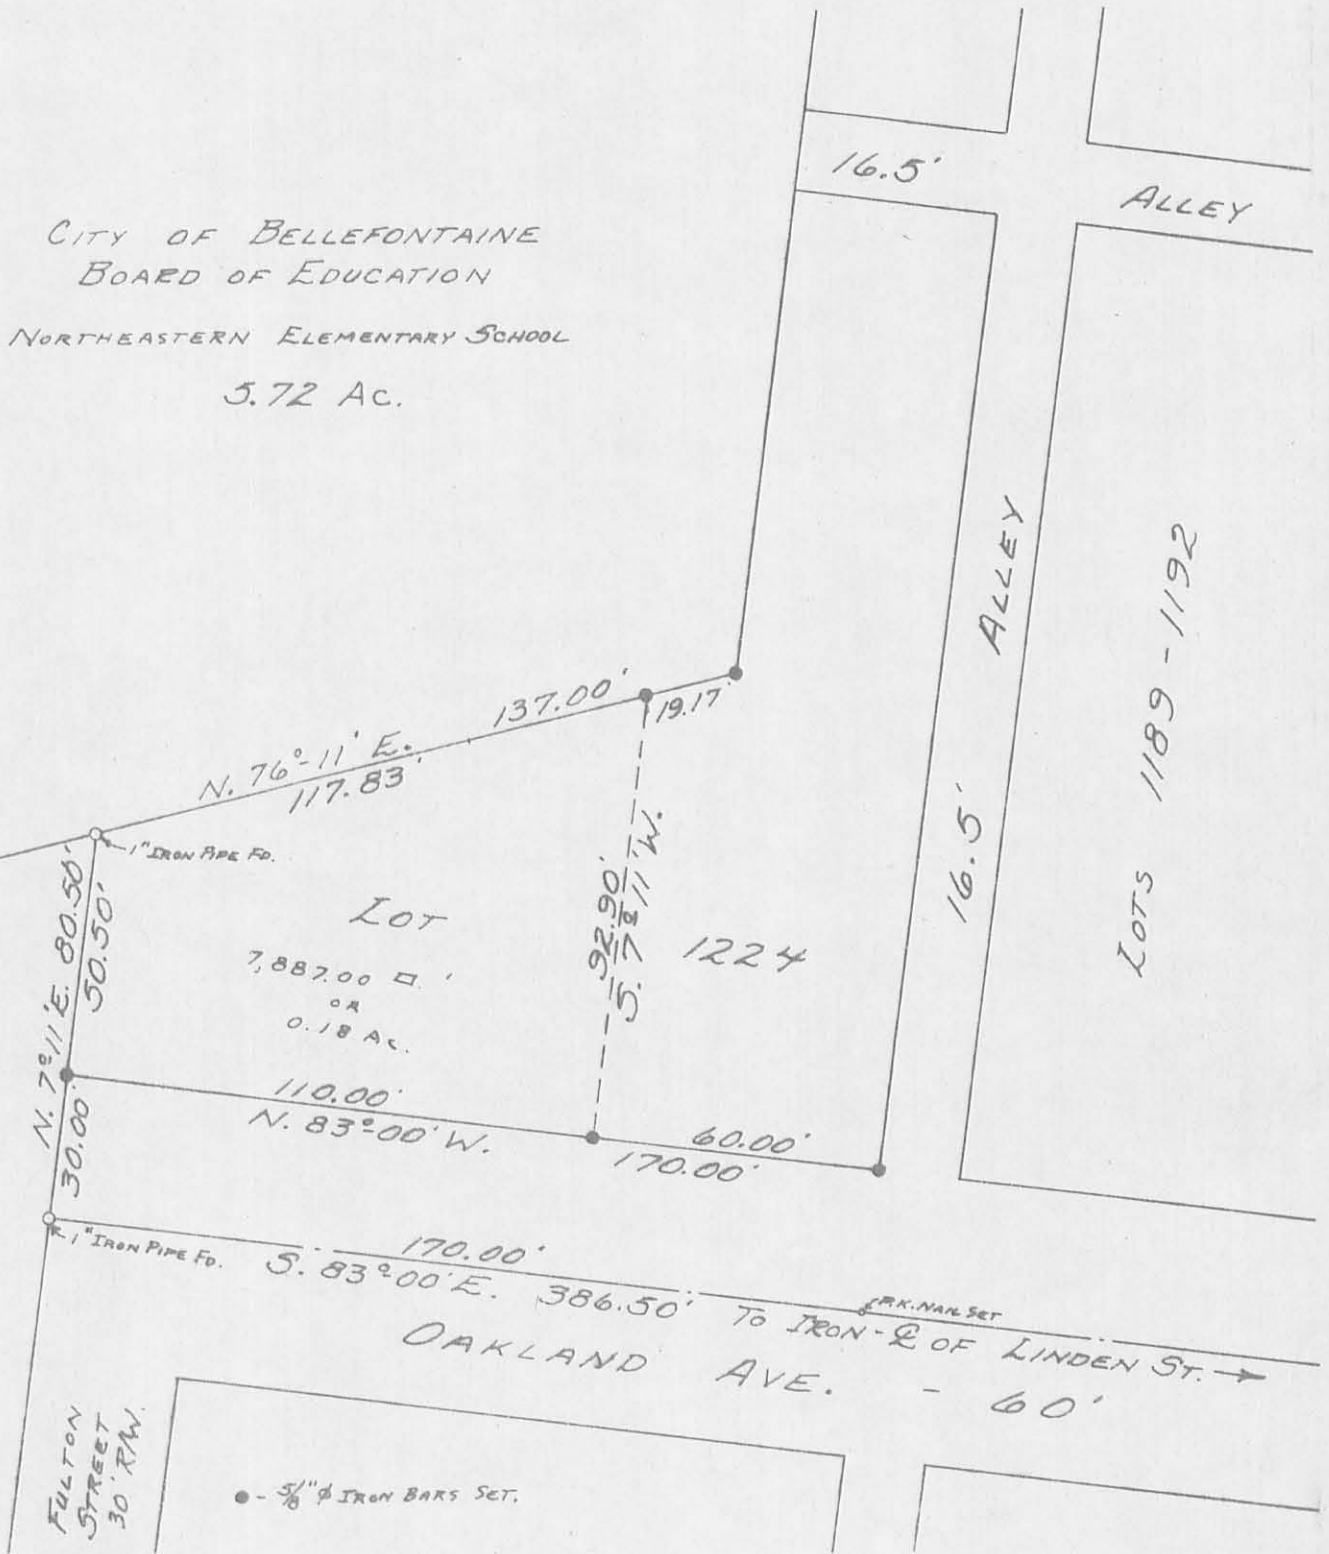 CITY OF BELLEFONTAINE
BOARD OF EDUCATION
NORTHEASTERN ELEMENTARY SCHOOL
5.72 AC.
16.5'
ALLEY
16.5' ALLEY
LOTS 1189-1192
137.00'
19.17'
N. 76°-11' E.
117.83'
1" IRON PIPE FD.
N. 7°11' E. 80.50'
50.50'
30.00'
LOT
1224
7,887.00 □'
OR
0.18 AC.
92.90'
S. 7°11' W.
110.00'
N. 83°-00' W.
60.00'
170.00'
1" IRON PIPE FD.
170.00'
S. 83°-00' E. 386.50' TO IRON-℄ OF LINDEN ST.
P.K. NAIL SET
OAKLAND AVE. - 60'
FULTON
STREET
30' R/W.
● - 5/8" ϕ IRON BARS SET.